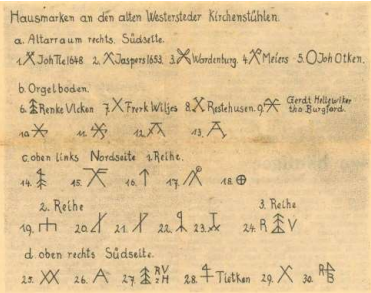 Hausmarken an den alten Westersteder Kirchenstühlen.
a. Altarraum rechts. Südseite.
1. Joh Tiel 1648 2. Jaspers 1653. 3. Wardenburg. 4. Meiers 5. Joh Otken.
b. Orgelboden.
6. Renke Vlcken 7. Frerk Wiljes 8. Restehusen. 9. Gerdt Hellewiker
tho Burgford.
10. 11. 12. 13.
c. oben links Nordseite 1. Reihe.
14. 15. 16. 17. 18.
2. Reihe 3. Reihe
19. 20. 21. 22. 23. 24. R V
d. oben rechts Südseite.
25. 26. 27. RV
H 28. Tietken 29. 30. R B